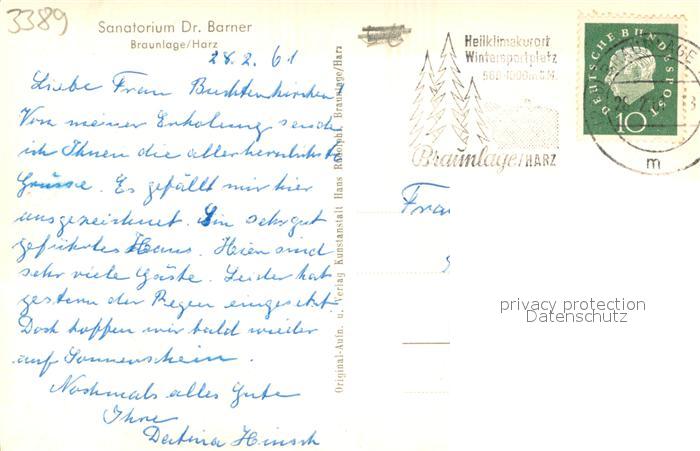 3389
Sanatorium Dr. Barner
Braunlage/Harz
28.2.61
Liebe Frau
Von meiner Erholung sende
ich Ihnen die allerherzlichste
Grüsse. Es gefällt mir hier
ausgezeichnet. Ein sehr gut
geführtes Haus. Hier sind
sehr viele Gäste. Leider hat
gestern der Regen eingesetzt.
Doch hoffen wir bald wieder
auf Sonnenschein.
Nochmals alles Gute
Ihre
Hinsch
Original-Aufn. u. Verlag Kunstanstalt Hans Rudolphi, Braunlage/Harz
Heilklimakurort
Wintersportplatz
560-1000m ü.N.
Braunlage/HARZ
DEUTSCHE BUNDESPOST
10
m
Frau
privacy protection
Datenschutz